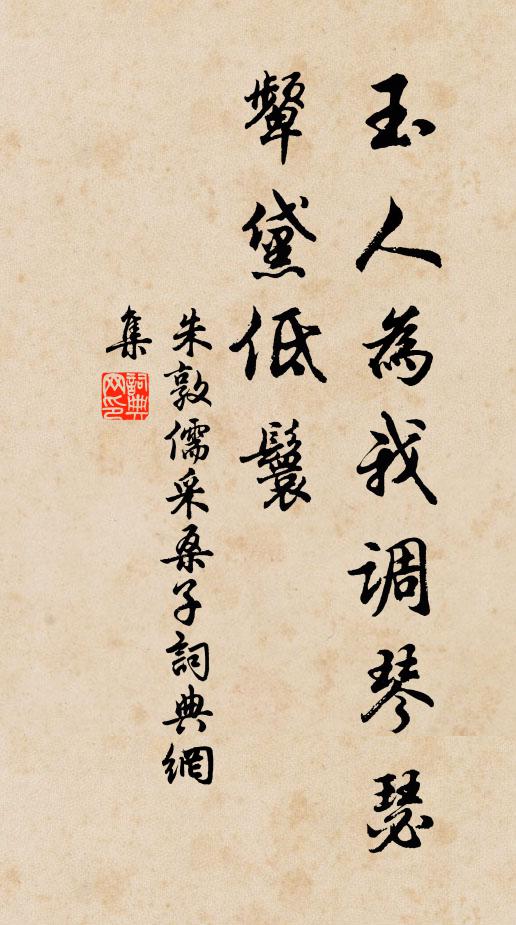 玉人為我調琴瑟
顰黛低鬟
朱敦儒采桑子詞典網
集
詞典
网印